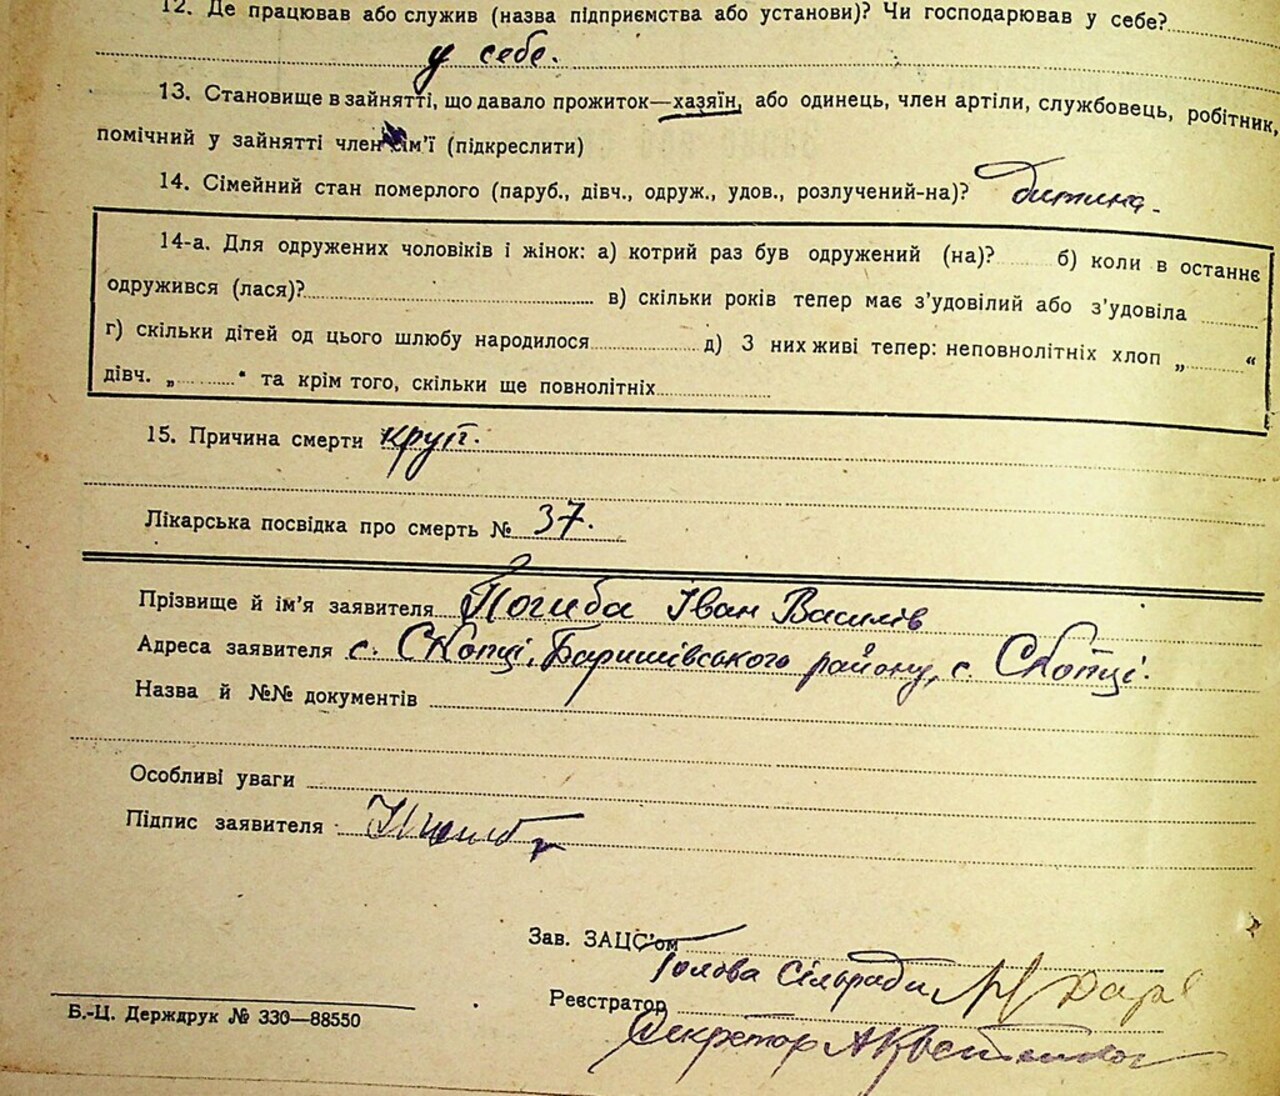 12. Де працював або служив (назва підприємства або установи)? Чи господарював у себе?
у себе.
13. Становище в зайнятті, що давало прожиток—хазяїн, або одинець, член артіли, службовець, робітник,
помічний у зайнятті член сім'ї (підкреслити)
14. Сімейний стан померлого (паруб., дівч., одруж., удов., розлучений-на)? дитина.
14-а. Для одружених чоловіків і жінок: а) котрий раз був одружений (на)? б) коли в останнє
одружився (лася)? в) скільки років тепер має з'удовілий або з'удовіла
г) скільки дітей од цього шлюбу народилося д) З них живі тепер: неповнолітніх хлоп „ “
дівч. „ “ та крім того, скільки ще повнолітніх
15. Причина смерти круп.
Лікарська посвідка про смерть № 37.
Прізвище й ім'я заявителя Погиба Іван Василів
Адреса заявителя с. Скопці, Баришівського району, с. Скопці.
Назва й №№ документів
Особливі уваги
Підпис заявителя
Зав. ЗАЦС'ом
Голова Сільради
Реєстратор
Секретар
Б.-Ц. Держдрук № 330—88550